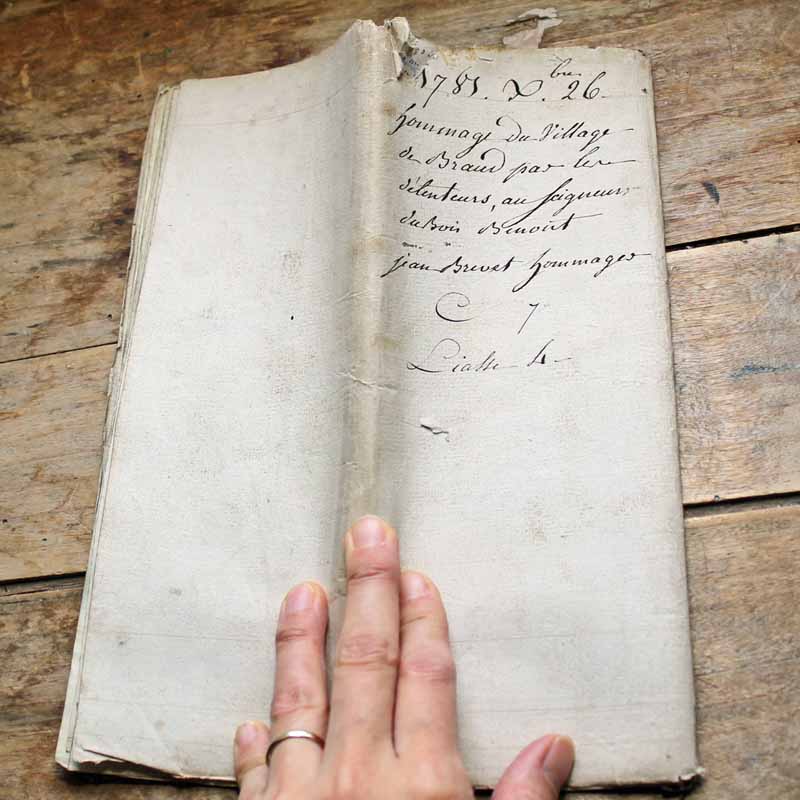 1781. X.bre 26
hommage du Village
de Braud par les
détenteurs, au seigneur
du Bois Benoist
jean Brevet hommager
C 7
Liasse 4